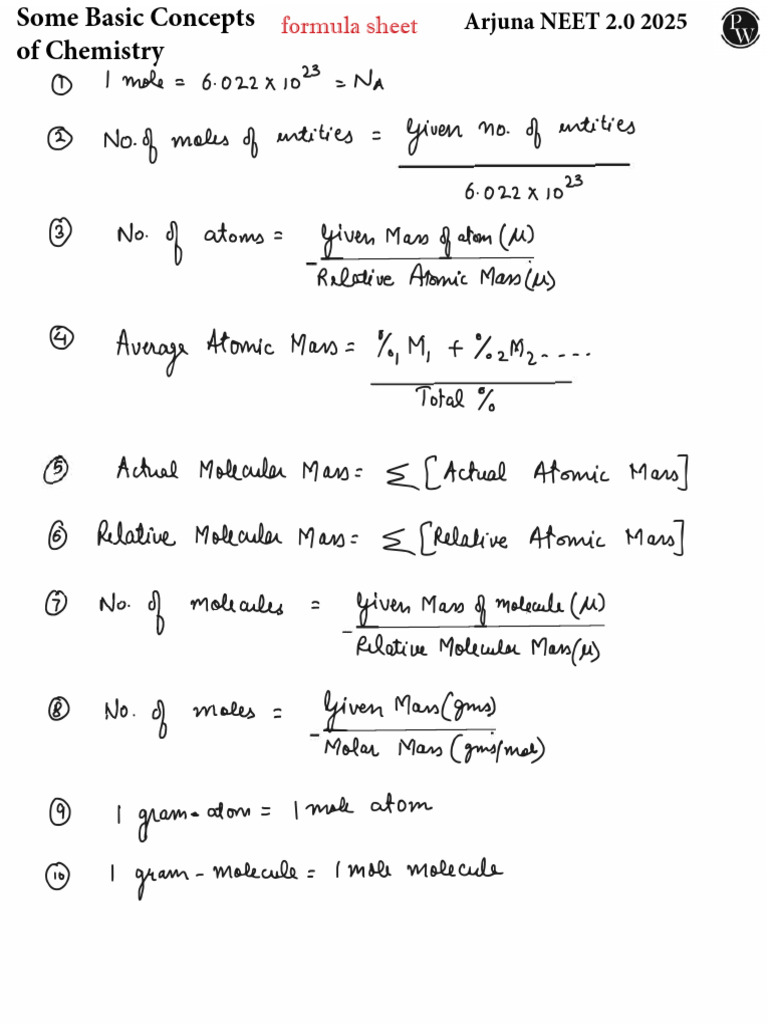 Some Basic Concepts of Chemistry
formula sheet
Arjuna NEET 2.0 2025
PW
① 1 mole = 6.022 x 10²³ = N_A
② No. of moles of entities = Given no. of entities / 6.022 x 10²³
③ No. of atoms = Given Mass of atom (μ) / Relative Atomic Mass (μ)
④ Average Atomic Mass = %₁ M₁ + %₂ M₂ .... / Total %
⑤ Actual Molecular Mass = Σ [Actual Atomic Mass]
⑥ Relative Molecular Mass = Σ [Relative Atomic Mass]
⑦ No. of molecules = Given Mass of molecule (μ) / Relative Molecular Mass (μ)
⑧ No. of moles = Given Mass (gms) / Molar Mass (gms/mol)
⑨ 1 gram-atom = 1 mole atom
⑩ 1 gram-molecule = 1 mole molecule